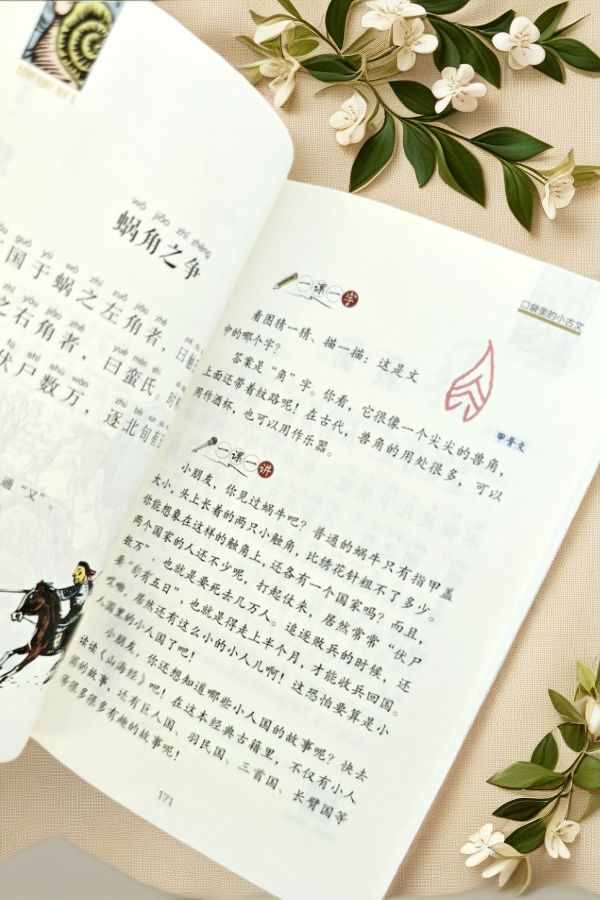 wō jiǎo zhī zhēng
蜗角之争
guó yú wō zhī zuǒ jiǎo zhě
国于蜗之左角者，曰
zhī yòu jiǎo zhě yuē mán shì
之右角者，曰蛮氏。
fú shī shù wàn zhú běi
伏尸数万，逐北旬有
通“又”。
口袋里的小古文
一课一字
看图猜一猜、描一描：这是文
中的哪个字？
答案是“角”字。你看，它很像一个尖尖的兽角，
上面还带着纹路呢！在古代，兽角的用处很多，可以
用作酒杯，也可以用作乐器。
甲骨文
一课一讲
小朋友，你见过蜗牛吧？普通的蜗牛只有指甲盖
大小，头上长着的两只小触角，比绣花针粗不了多少。
你能想象在这样的触角上，还各有一个国家吗？而且，
两个国家的人还不少呢，打起仗来，居然常常“伏尸
数万”，也就是要死去几万人。追逐败兵的时候，还
要“旬有五日”，也就是得走上半个月，才能收兵回国。
哎哟，居然还有这么小的小人儿啊！这恐怕要算是小
人国里的小人国了吧！
小朋友，你还想知道哪些小人国的故事呢？快去
读读《山海经》吧！在这本经典古籍里，不仅有小人
国的故事，还有巨人国、羽民国、三首国、长臂国等
等很多很多有趣的故事呢！
171